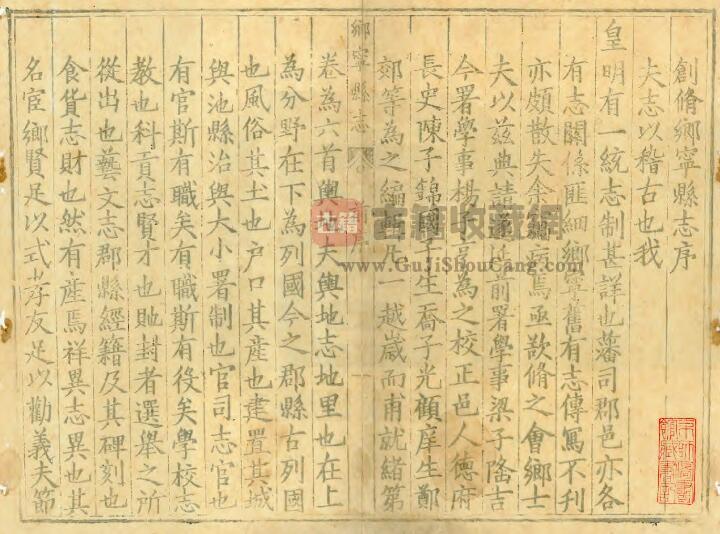 創脩鄉寧縣志序
夫志以稽古也我
皇明有一統志制甚詳也藩司郡邑亦各
有志關係匪細鄉寧舊有志傳寫不利
亦頗散失余竊病焉亟欲脩之會鄉士
夫以茲典請遂
前署學事梁子隆吉
今署學事楊子
為之校正邑人德府
長史陳子錦國子生喬子光顧庠生鄭
郊等為之編
凡一越歲而甫就緒第
鄉寧縣志
卷為六首輿地夫輿地志地里也在上
為分野在下為列國今之郡縣古列國
也風俗其土也户口其產也建置其城
與池縣治與大小署制也官司志官也
有官斯有職矣有職斯有役矣學校志
教也科貢志賢才也貤封者選舉之所
從出也藝文志郡縣經籍及其碑刻也
食貨志財也然有產焉祥異志異也其
名宦鄉賢足以式孝友足以勸義夫節
古籍
古籍收藏網
www.GuJiShouCang.com